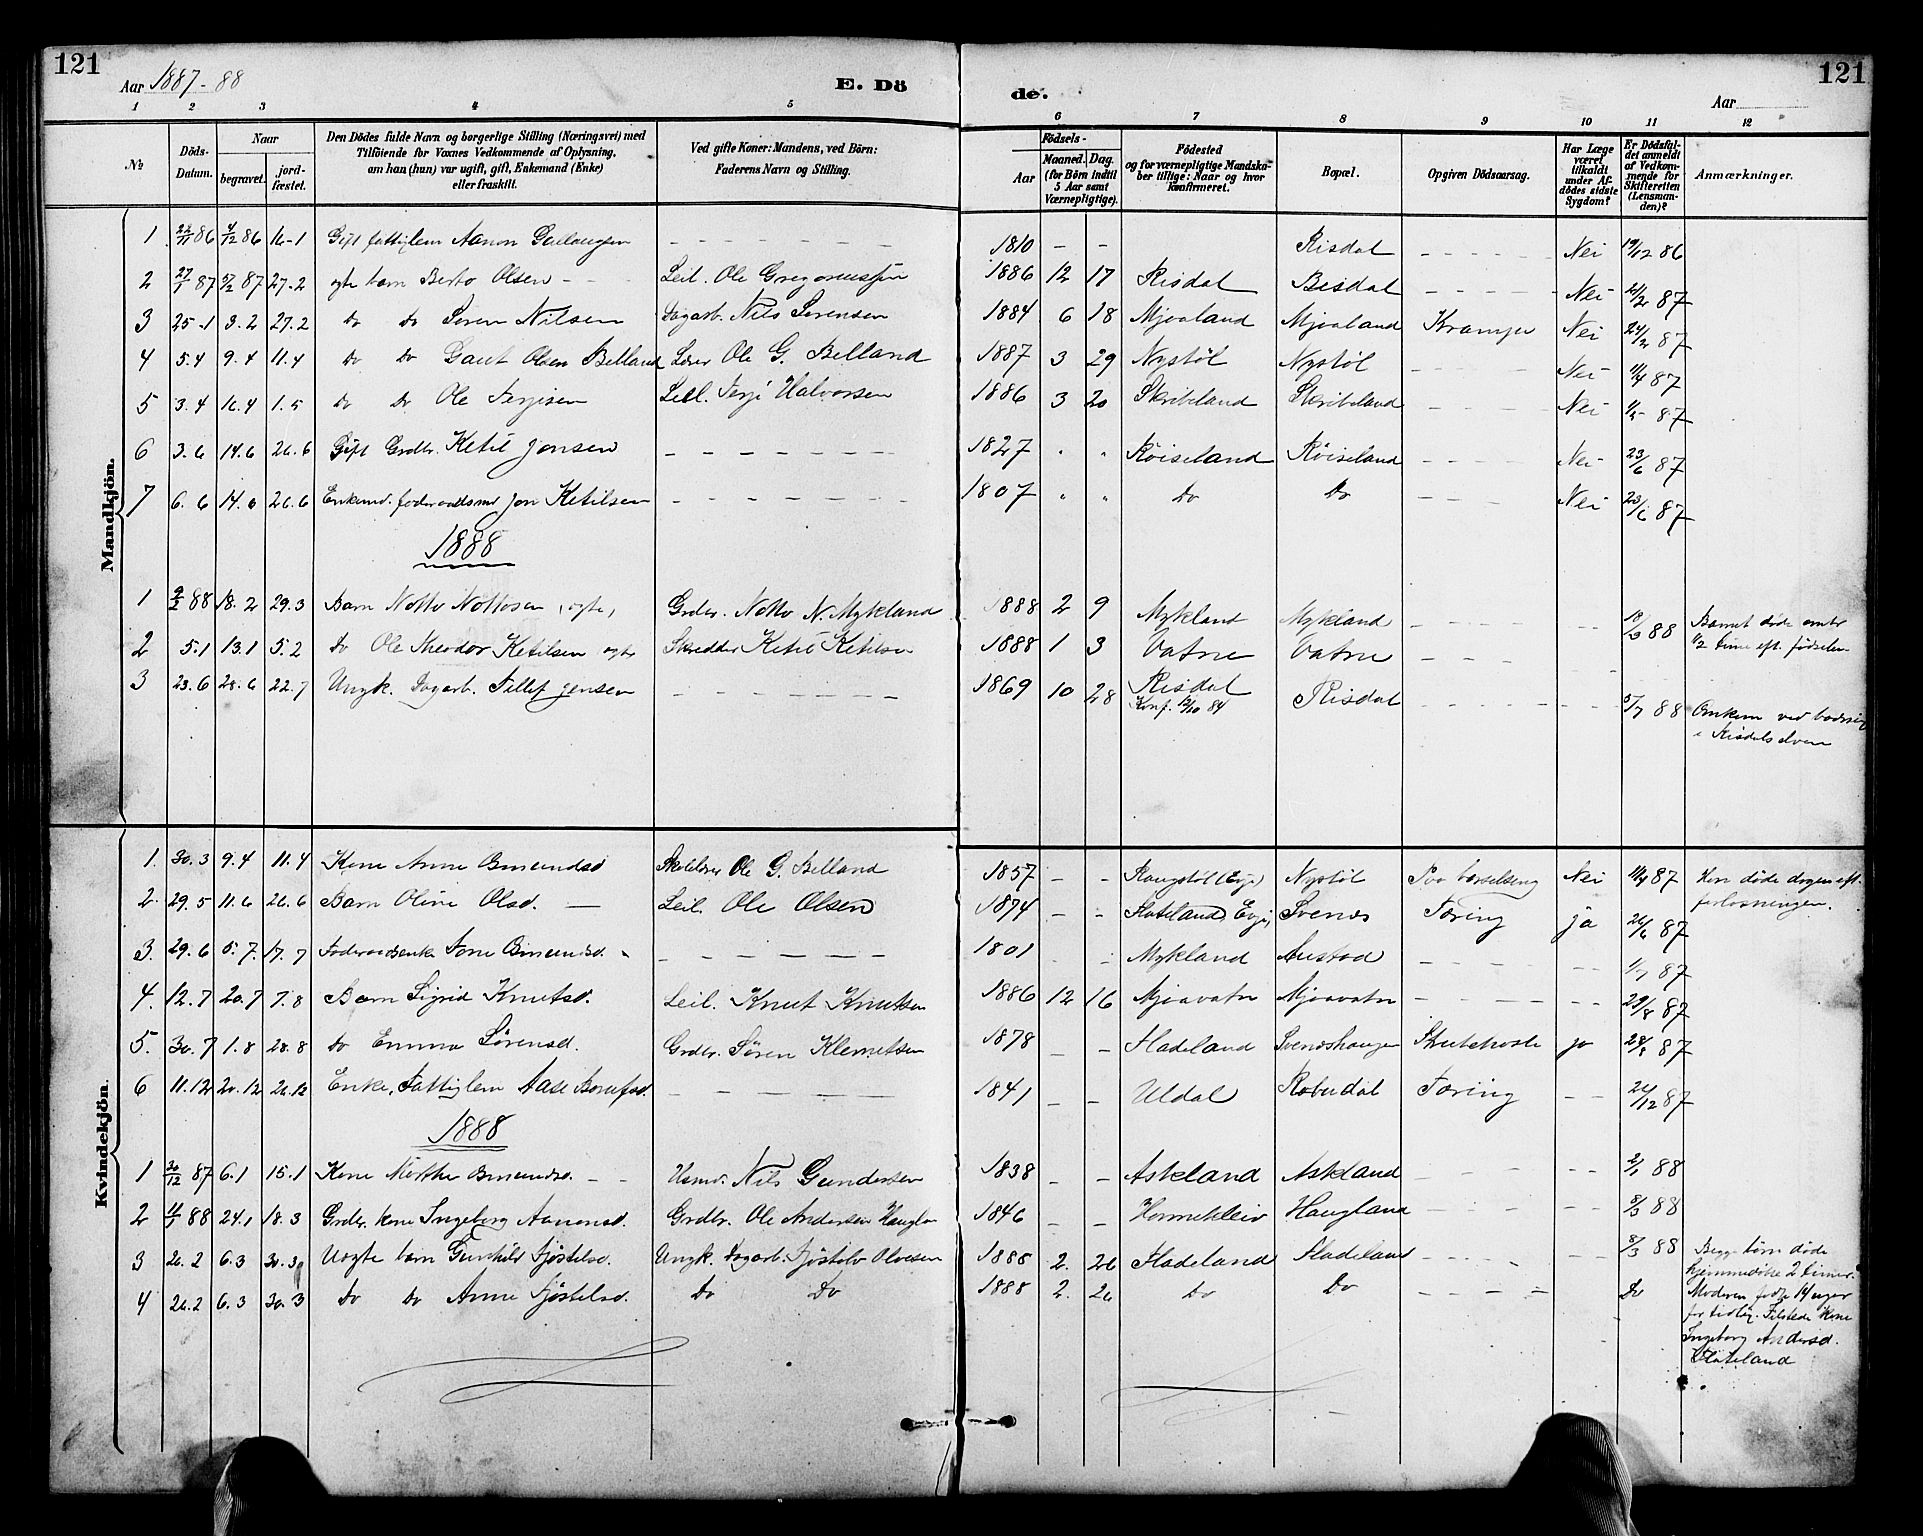 121
Aar 1887-88
E. Dö
de.
Aar
121
1 2 3 4 5 6 7 8 9 10 11 12
№
Döds-Datum.
Naar
begravet.
jord-fæstet.
Den Dödes fulde Navn og borgerlige Stilling (Næringsvei) med
Tilföiende for Voxnes Vedkommende af Oplysning,
om han (hun) var ugift, gift, Enkemand (Enke)
eller fraskilt.
Ved gifte Koner: Mandens, ved Börn:
Faderens Navn og Stilling.
Födsels-
Aar
Maaned. Dag.
(for Börn indtil
5 Aar samt
Værnepligtige).
Födested
og for værnepligtige Mandska-
ber tillige: Naar og hvor
konfirmeret.
Bopæl.
Opgiven Dödsaarsag.
Har Læge
været
tilkaldt
under Af-
dödes sidste
Sygdom?
Er Dödsfal-
det anmeldt
af Vedkom-
mende for
Skifteretten
(Lensman-
den)?
Anmærkninger.
Mandkjön.
1 22/11 86 4/12 86 16-1 Gift fattiglem Aanon - - - 1810 - - Risdal - - - Nei 19/12 86
2 27/1 87 5/2 87 27.2 ægte barn Berto Olsen - Leil. Ole Gregoriussen 1886 12 17 Risdal Risdal - - - Nei 21/2 87
3 25-1 3.2 27.2 Do Do Søren Nilsen Dagarb. Nils Sørensen 1884 6 18 Mjoaland Mjoaland Krampe Nei 24/2 87
4 5.4 9.4 11.4 Do Do Gaut Olsen Belland Lærer Ole G. Belland 1887 3 29 Nystøl Nystøl - - - Nei 11/4 87
5 3.4 16.4 1.5 Do Do Ole Terjesen Leil. Terje Halvorsen 1886 3 20 Skribeland Skribeland - - - Nei 1/5 87
6 3.6 14.6 26.6 Gift Grdbr. Ketil Jensen - - - 1827 " " Røiseland Røiseland - - - Nei 23/6 87
7 6.6 14.6 26.6 Enkemd. føderaadsmd Jon Ketilsen - - - 1807 " " Do Do - - - Nei 23/6 87
1888
1 9/2 88 18.2 29.3 Barn Notto Nottosen, ægte, Grdbr. Notto N. Mykland 1888 2 9 Mykland Mykland - - - - - 18/3 88 Barnet døde omtr
1/2 time eft. fødselen
2 5.1 13.1 5.2 Do Ole Theodor Ketilsen ægte Skrædder Ketil Ketilsen 1888 1 3 Vatne Vatne - - -
3 23.6 28.6 22.7 Ungk. Dagarb. Tellef Jensen - - - 1869 10 28 Risdal Risdal - - - - - 5/7 88 Omkom ved
Konf. 12/10 84
i Risdalselven
Kvindekjön.
1. 30.3 9.4 11.4 Kone Anne Omundsd Skolelærer Ole G. Belland 1857 - - Nystøl Paa barselseng Nei 11/4 87 Hun døde dagen eft.
forløsningen.
2. 29.5 11.6 26.6 Barn Oline Olsd. - Leil. Ole Olsen 1874 - - Flateland, Evje, Svenes Tæring ja 26/6 87
3. 29.6 5.7. 17.7 Føderaadsenke Tone Omundsd. - - - 1801 - - Mykland Austad - - - - - 1/7 87
4. 12.7 20.7 7.8 Barn Sigrid Knutsd. Leil. Knut Knutsen 1886 12 16 Mjaavatn Mjaavatn - - - - - 29/8 87
5. 30.7 1.8 28.8 Do Emma Sørensd. Grdbr. Søren Klemetsen 1878 - - Fladeland Svenæshaugen Strubehoste ja 28/8 87
6 11.12 20.12 26.12 Enke, Fattiglem Aase - - - 1841 - - Uldal Tæring - - 26/12 87
1888
1 30/12 87 6.1 15.1 Kone Marthe Omundsd. - - Husmd. Nils Gundersen 1838 - - Askland Askland - - - - - 2/1 88
2 88 24.1 18.3 Grdbr. kone Ingeborg Aanonsd. Grdbr. Ole Andersen 1846 - - Hommekleiv Haugland - - - - - 8/3 88
3 26.2 6.3 30.3 Uægte barn Gunhild Fjøstelsd. Ungk. Dagarb. Fjøstelv Olvesen 1888 2. 26 Fladeland Fladeland - - - - - 8/3 88 Begge børn døde
hjemmedøbte 2 timer.
4 26.2 6.3 30.3 Do Do Anne Fjøstelsd. Do Do 1888 2. 26 Do Do - - - - Do Moderen fødte 14 uger
for tidlig. Tilstede Kone
Ingeborg Andersd.
Flateland